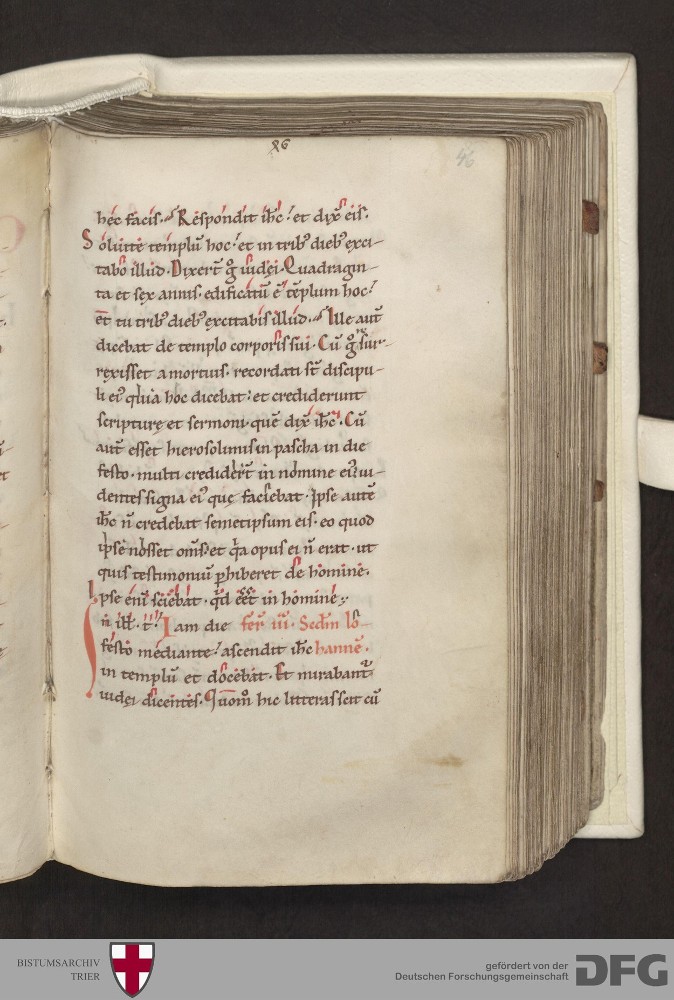 86
46
hęc facis. Respondit ih̅c : et dix̅ eis.
Soluite templu̅ hoc : et in trib; dieb; exci-
tabo illud. Dixer̅t g̊ iudęi. Quadragin-
ta et sex annis. edificatu̅ e̅ te̅plum hoc :
et tu trib; dieb; excitabis illud. Ille aut̅
dicebat de templo corporis sui. Cu̅ g̊ sur-
rexisset a mortuis. recordati st̅ discipu-
li ei⁹ quia hoc dicebat : et crediderunt
scripturę et sermoni. que̅ dix̅ ih̅c. Cu̅
aut̅ esset hierosolimis in pascha in die
festo. multi credider̅t in nomine ei⁹ : ui-
dentes signa ei⁹ quę faciebat. Ipse aute̅
ih̅c n̅ credebat semetipsum eis. eo quod
ipse nosset om̅s : et q̅a opus ei n̅ erat. ut
quis testimoniu̅ p̲hiberet de homine.
Ipse eni̅ sciebat. q̅d e̅e̅t in homine ;
In ill̅. t̅. Iam die fer̅ iii. Sedm̅ Io-
festo mediante : ascendit ih̅c hanne̅.
in templu̅ et docebat. Et mirabant̅
iudęi dicentes. Quom̅ hic litteras scit cu̅
BISTUMSARCHIV
TRIER
gefördert von der
Deutschen Forschungsgemeinschaft
DFG